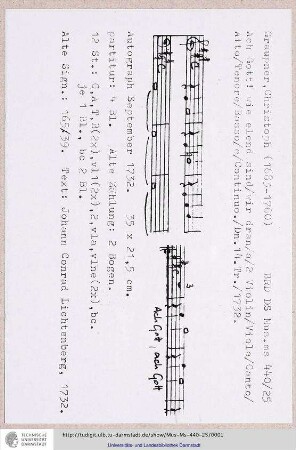 Graupner, Christoph (1683-1760) BRD DS Mus.ms 440/25
Ach Gott! wie elend sind/wir dran/a/2 Violin/Viola/Canto/
Alto/Tenore/Basso/e/Continuo./Dn.14.Tr./1732.
Ach Gott, ach Gott
Autograph September 1732. 35 x 21,5 cm.
partitur: 4 Bl. Alte Zählung: 2 Bogen.
12 St.: C,A,T,B(2x),vl1(2x),2,vla,vlne(2x),bc.
je 1 Bl., bc 2 Bl.
Alte Sign.: 165/39. Text: Johann Conrad Lichtenberg, 1732.
http://tudigit.ulb.tu-darmstadt.de/show/Mus-Ms-440-25/0001
Universitäts- und Landesbibliothek Darmstadt
TECHNISCHE
UNIVERSITÄT
DARMSTADT